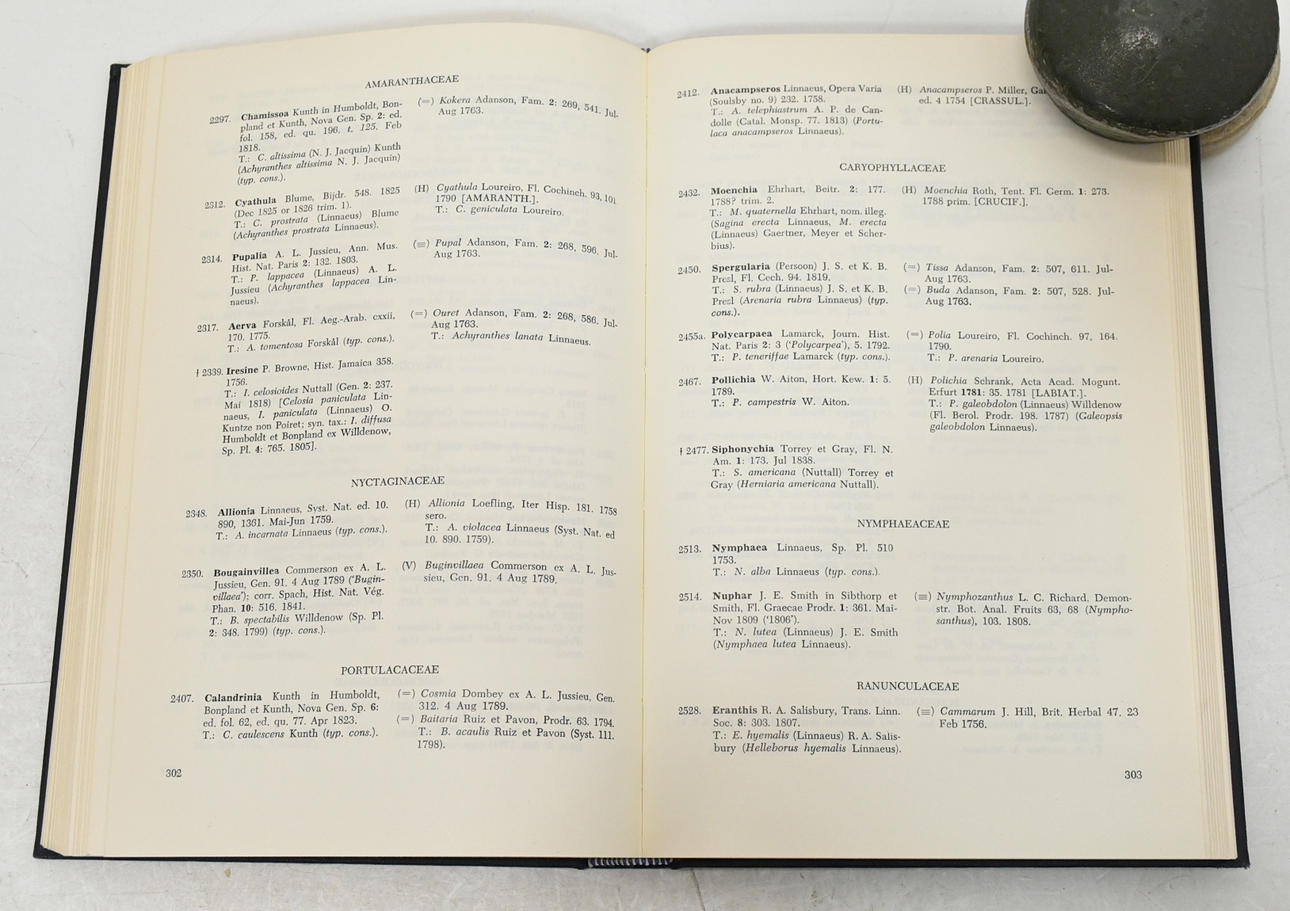 AMARANTHACEAE
2297. Chamissoa Kunth in Humboldt, Bon-
pland et Kunth, Nova Gen. Sp. 2: ed.
fol. 158, ed. qu. 196. t. 125. Feb
1818.
T.: C. altissima (N. J. Jacquin) Kunth
(Achyranthes altissima N. J. Jacquin)
(typ. cons.).
(=) Kokera Adanson, Fam. 2: 269, 541. Jul-
Aug 1763.
2312. Cyathula Blume, Bijdr. 548. 1825
(Dec 1825 or 1826 trim. 1).
T.: C. prostrata (Linnaeus) Blume
(Achyranthes prostrata Linnaeus).
(H) Cyathula Loureiro, Fl. Cochinch. 93, 101.
1790 [AMARANTH.].
T.: C. geniculata Loureiro.
2314. Pupalia A. L. Jussieu, Ann. Mus.
Hist. Nat. Paris 2: 132. 1803.
T.: P. lappacea (Linnaeus) A. L.
Jussieu (Achyranthes lappacea Lin-
naeus).
(≡) Pupal Adanson, Fam. 2: 268, 596. Jul-
Aug 1763.
2317. Aerva Forskål, Fl. Aeg.-Arab. cxxii,
170. 1775.
T.: A. tomentosa Forskål (typ. cons.).
(=) Ouret Adanson, Fam. 2: 268, 586. Jul-
Aug 1763.
T.: Achyranthes lanata Linnaeus.
† 2339. Iresine P. Browne, Hist. Jamaica 358.
1756.
T.: I. celosioides Nuttall (Gen. 2: 237.
Mai 1818) [Celosia paniculata Lin-
naeus, I. paniculata (Linnaeus) O.
Kuntze non Poiret; syn. tax.: I. diffusa
Humboldt et Bonpland ex Willdenow,
Sp. Pl. 4: 765. 1805].
NYCTAGINACEAE
2348. Allionia Linnaeus, Syst. Nat. ed. 10.
890, 1361. Mai-Jun 1759.
T.: A. incarnata Linnaeus (typ. cons.).
(H) Allionia Loefling, Iter Hisp. 181. 1758
sero.
T.: A. violacea Linnaeus (Syst. Nat. ed
10. 890. 1759).
2350. Bougainvillea Commerson ex A. L.
Jussieu, Gen. 91. 4 Aug 1789 ('Bugin-
villaea'); corr. Spach, Hist. Nat. Vég.
Phan. 10: 516. 1841.
T.: B. spectabilis Willdenow (Sp. Pl.
2: 348. 1799) (typ. cons.).
(V) Buginvillaea Commerson ex A. L. Jus-
sieu, Gen. 91. 4 Aug 1789.
PORTULACACEAE
2407. Calandrinia Kunth in Humboldt,
Bonpland et Kunth, Nova Gen. Sp. 6:
ed. fol. 62, ed. qu. 77. Apr 1823.
T.: C. caulescens Kunth (typ. cons.).
(=) Cosmia Dombey ex A. L. Jussieu, Gen.
312. 4 Aug 1789.
(=) Baitaria Ruiz et Pavon, Prodr. 63. 1794.
T.: B. acaulis Ruiz et Pavon (Syst. 111.
1798).
302
2412. Anacampseros Linnaeus, Opera Varia
(Soulsby no. 9) 232. 1758.
T.: A. telephiastrum A. P. de Can-
dolle (Catal. Monsp. 77. 1813) (Portu-
laca anacampseros Linnaeus).
(H) Anacampseros P. Miller,
ed. 4 1754 [CRASSUL.].
CARYOPHYLLACEAE
2432. Moenchia Ehrhart, Beitr. 2: 177.
1788? trim. 2.
T.: M. quaternella Ehrhart, nom. illeg.
(Sagina erecta Linnaeus, M. erecta
(Linnaeus) Gaertner, Meyer et Scher-
bius).
(H) Moenchia Roth, Tent. Fl. Germ. 1: 273.
1788 prim. [CRUCIF.].
2450. Spergularia (Persoon) J. S. et K. B.
Presl, Fl. Cech. 94. 1819.
T.: S. rubra (Linnaeus) J. S. et K. B.
Presl (Arenaria rubra Linnaeus) (typ.
cons.).
(=) Tissa Adanson, Fam. 2: 507, 611. Jul-
Aug 1763.
(=) Buda Adanson, Fam. 2: 507, 528. Jul-
Aug 1763.
2455a. Polycarpaea Lamarck, Journ. Hist.
Nat. Paris 2: 3 ('Polycarpea'), 5. 1792.
T.: P. teneriffae Lamarck (typ. cons.).
(=) Polia Loureiro, Fl. Cochinch. 97, 164.
1790.
T.: P. arenaria Loureiro.
2467. Pollichia W. Aiton, Hort. Kew. 1: 5.
1789.
T.: P. campestris W. Aiton.
(H) Polichia Schrank, Acta Acad. Mogunt.
Erfurt 1781: 35. 1781 [LABIAT.].
T.: P. galeobdolon (Linnaeus) Willdenow
(Fl. Berol. Prodr. 198. 1787) (Galeopsis
galeobdolon Linnaeus).
† 2477. Siphonychia Torrey et Gray, Fl. N.
Am. 1: 173. Jul 1838.
T.: S. americana (Nuttall) Torrey et
Gray (Herniaria americana Nuttall).
NYMPHAEACEAE
2513. Nymphaea Linnaeus, Sp. Pl. 510
1753.
T.: N. alba Linnaeus (typ. cons.).
2514. Nuphar J. E. Smith in Sibthorp et
Smith, Fl. Graecae Prodr. 1: 361. Mai-
Nov 1809 ('1806').
T.: N. lutea (Linnaeus) J. E. Smith
(Nymphaea lutea Linnaeus).
(≡) Nymphozanthus L. C. Richard, Demon-
str. Bot. Anal. Fruits 63, 68 (Nympho-
santhus), 103. 1808.
RANUNCULACEAE
2528. Eranthis R. A. Salisbury, Trans. Linn.
Soc. 8: 303. 1807.
T.: E. hyemalis (Linnaeus) R. A. Salis-
bury (Helleborus hyemalis Linnaeus).
(≡) Cammarum J. Hill, Brit. Herbal 47. 23
Feb 1756.
303